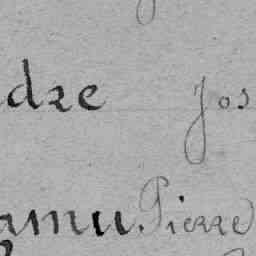 dre Jos
amu Pierre